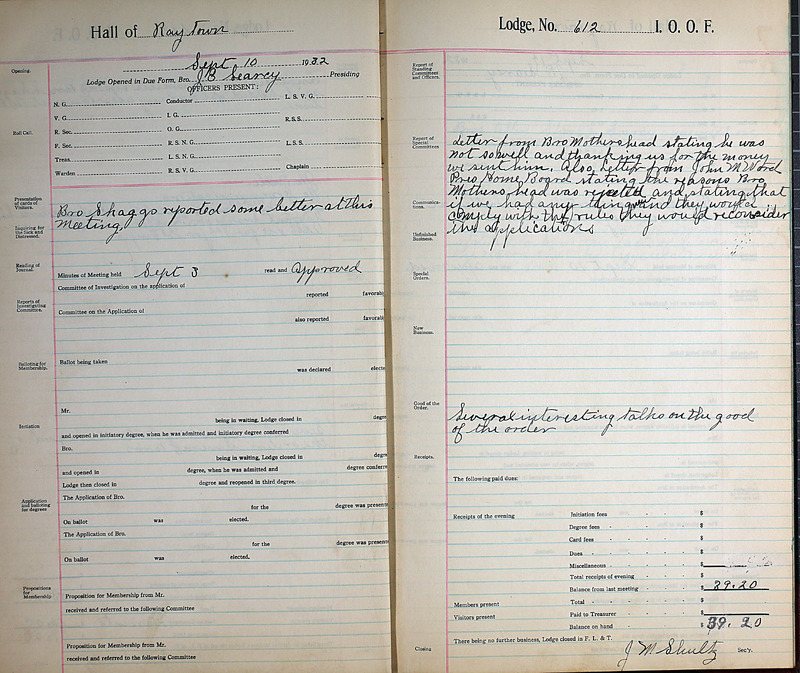 Hall of Raytown
Sept 10 1932
Lodge Opened in Due Form, Bro. J B Searcy Presiding
OFFICERS PRESENT:
Opening.
Roll Call.
N. G.
Conductor
L. S. V. G.
V. G.
I. G.
R.S.S.
R. Sec.
O. G.
F. Sec.
R. S. N. G.
L. S. S.
Treas.
L. S. N. G.
Warden
R. S. V. G.
Chaplain
Presentation of cards of Visitors.
Inquiring for the Sick and Distressed.
Bro Shaggs reported some better at this
Meeting
Reading of Journal.
Minutes of Meeting held Sept 3 read and Approved
Committee of Investigation on the application of
reported favorabl
Reports of Investigating Committee.
Committee on the Application of
also reported favorabl
Balloting for Membership.
Ballot being taken
was declared electe
Initiation
Mr.
being in waiting, Lodge closed in degre
and opened in initiatory degree, when he was admitted and initiatory degree conferred
Bro.
being in waiting, Lodge closed in degre
and opened in degree, when he was admitted and degree conferre
Lodge then closed in degree and reopened in third degree.
Application and balloting for degrees
The Application of Bro.
for the degree was present
On ballot was elected.
The Application of Bro.
for the degree was present
On ballot was elected.
Propositions for Membership
Proposition for Membership from Mr.
received and referred to the following Committee
Proposition for Membership from Mr.
received and referred to the following Committee
Lodge, No. 612 I. O. O. F.
Report of Standing Committees and Officers.
Report of Special Committees
Letter from Bro Mothershead stating he was
not so well and thanking us for the money
we sent him. Also letter from John M Word
Pres Home Board stating the reasons Bro
Mothershead was rejected and stating that
if we had any thing and they would
comply with the rules they would reconsider
the applications
Communications.
Unfinished Business.
Special Orders.
New Business.
Good of the Order.
Several interesting talks on the good
of the order
Receipts.
The following paid dues:
Receipts of the evening
Initiation fees $
Degree fees $
Card fees $
Dues $
Miscellaneous $
Total receipts of evening $
Balance from last meeting $ 39.20
Members present
Total $
Visitors present
Paid to Treasurer $
Balance on hand $ 39.20
Closing
There being no further business, Lodge closed in F. L. & T.
J M Shultz Sec'y.